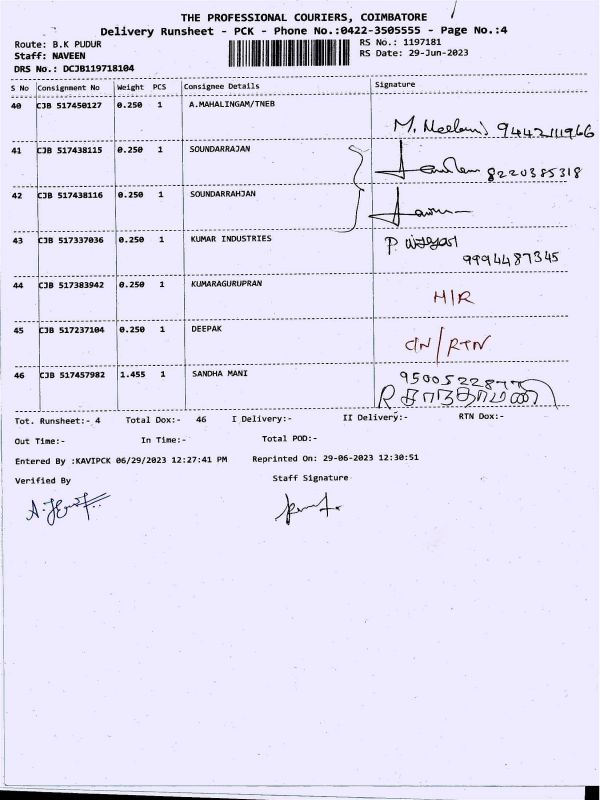 THE PROFESSIONAL COURIERS, COIMBATORE
Delivery Runsheet - PCK - Phone No.:0422-3505555 - Page No.:4
Route: B.K PUDUR RS No.: 1197181
Staff: NAVEEN RS Date: 29-Jun-2023
DRS No.: DCJB119718104
S No Consignment No Weight PCS Consignee Details Signature
40 CJB 517450127 0.250 1 A.MAHALINGAM/TNEB
9442111966
41 CJB 517438115 0.250 1 SOUNDARRAJAN
8220385318
42 CJB 517438116 0.250 1 SOUNDARRAHJAN
43 CJB 517337036 0.250 1 KUMAR INDUSTRIES
9994487345
44 CJB 517383942 0.250 1 KUMARAGURUPRAN
H/R
45 CJB 517237104 0.250 1 DEEPAK
CN/RTN
46 CJB 517457982 1.455 1 SANDHA MANI
R சாந்தாமணி
Tot. Runsheet:- 4 Total Dox:- 46 I Delivery:- II Delivery:- RTN Dox:-
Out Time:- In Time:- Total POD:-
Entered By :KAVIPCK 06/29/2023 12:27:41 PM Reprinted On: 29-06-2023 12:30:51
Verified By Staff Signature